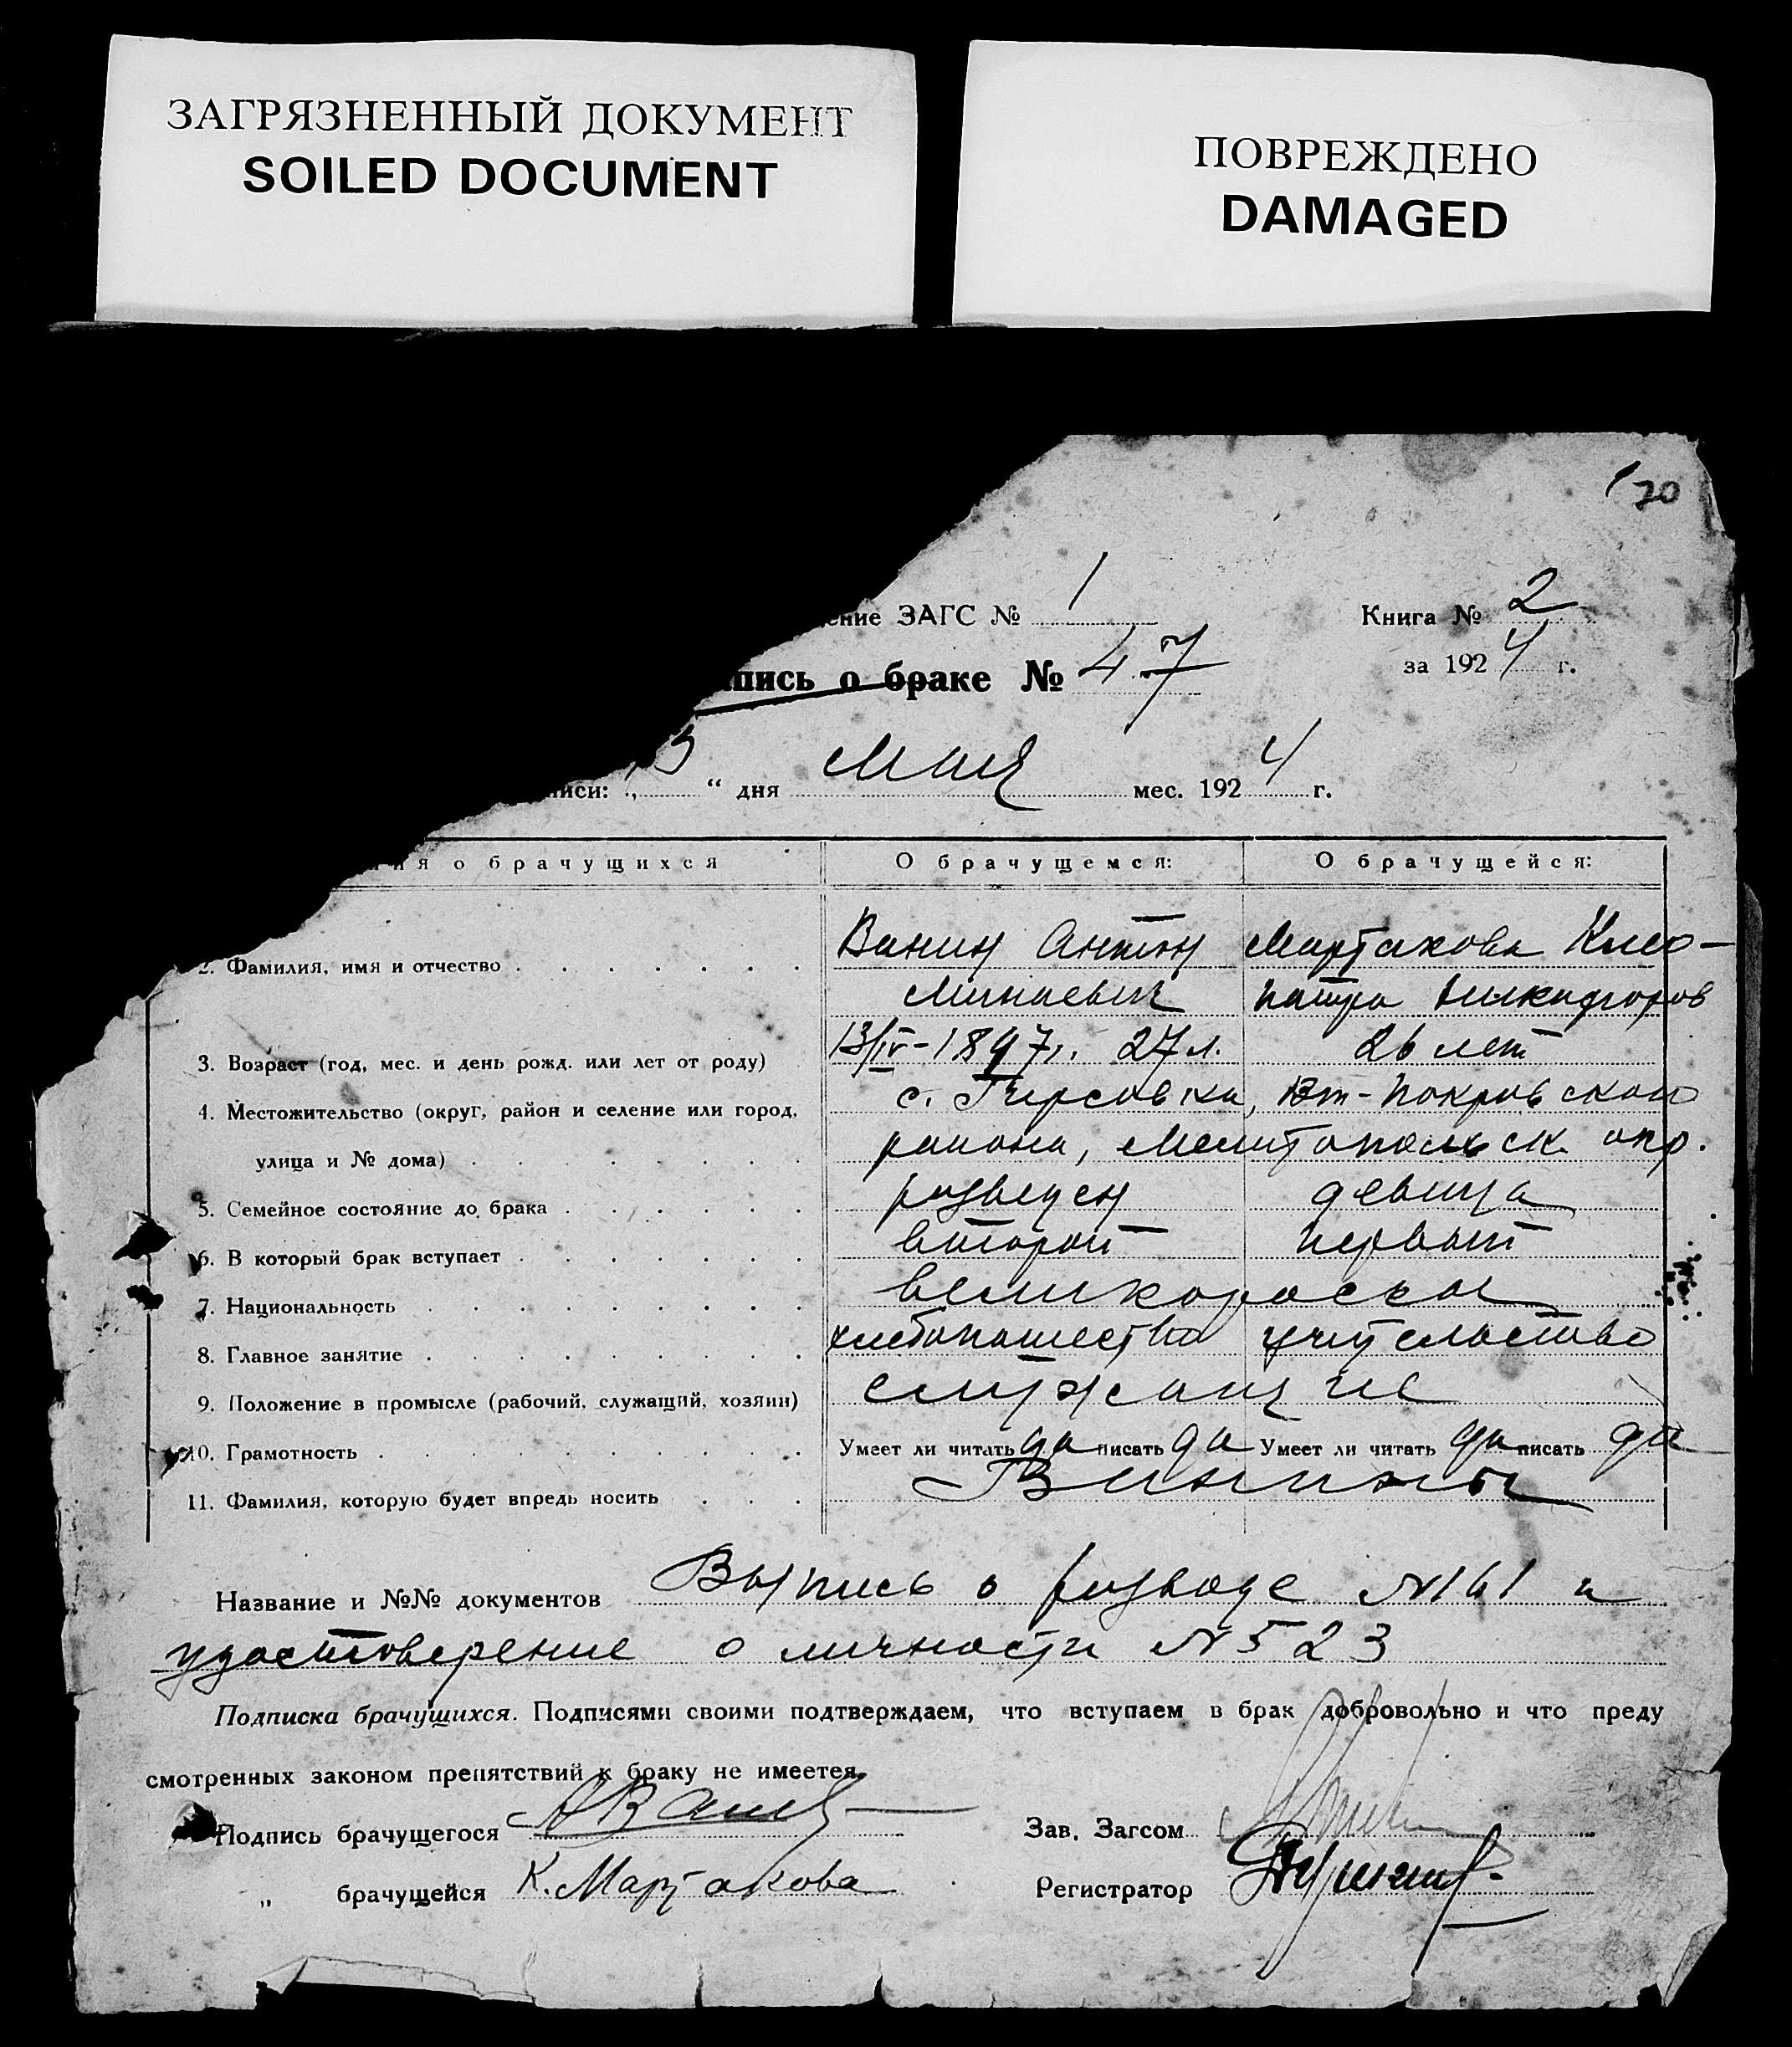 ЗАГРЯЗНЕННЫЙ ДОКУМЕНТ
SOILED DOCUMENT
ПОВРЕЖДЕНО
DAMAGED
170
ение ЗАГС № 1 Книга № 2
пись о браке № 47 за 1924 г.
иси: „ 3 “ дня Мая мес. 1924 г.
ия о брачущихся О брачущемся: О брачущейся:
2. Фамилия, имя и отчество Ванин Антон Мартакова Клео-
Минаевич патра Никифоров
3. Возраст (год, мес. и день рожд. или лет от роду) 13/IV-1897г. 27 л. 26 лет
4. Местожительство (округ, район и селение или город, с. Гирсовка, Вт-Покровского
улица и № дома) района, Мелитопольск. окр.
5. Семейное состояние до брака разведен девица
6. В который брак вступает второй первый
7. Национальность великороссы
8. Главное занятие хлебопашество учительство
9. Положение в промысле (рабочий, служащий, хозяин) служащие
10. Грамотность Умеет ли читать да писать да Умеет ли читать да писать да
11. Фамилия, которую будет впредь носить Ванины
Название и №№ документов Выпись о разводе №161 и
удостоверение о личности №523
Подписка брачущихся. Подписями своими подтверждаем, что вступаем в брак добровольно и что преду
смотренных законом препятствий к браку не имеется.
Подпись брачущегося АВанин Зав. Загсом
„ брачущейся К. Мартакова Регистратор